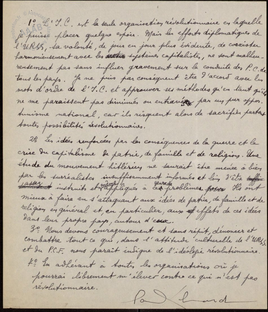 1º L'I.C. est la seule organisation révolutionnaire en laquelle
je puisse placer quelque espoir. Mais les efforts diplomatiques de
l'URSS, sa volonté, de jour en jour plus évidente, de coexister
harmonieusement avec les systèmes capitalistes, ne sont malheu-
reusement pas sans influer gravement sur la conduite des P.C. de
tous les pays. Je ne puis par conséquent être d'accord avec les
mots d'ordre de l'I.C. et approuver ses méthodes qu'en tant qu'ils
ne me paraissent pas diminués ou par un pur oppor-
tunisme national, car ils risquent alors de sacrifier
toutes possibilités révolutionnaires.
2º Les idées renforcées par les conséquences de la guerre et la
crise du capitalisme sont de patrie, de famille et de religion. Une
étude du mouvement littéraire ne saurait être menée à bien
par les surréalistes insuffisamment informés et
instruits et des problèmes. Ils ont
mieux à faire en s'attaquant aux idées de patrie, de famille et de
religion en général et, en particulier, aux effets de ces idées
dans leur propre pays, autour d'eux.
3º Nous devons courageusement et sans répit, dénoncer et
combattre tout ce qui, dans l'attitude culturelle de l'URSS
et du P.C.F. nous paraît indigne de l'idéologie révolutionnaire.
4º En adhérant à toutes les organisations où je
pourrai librement m'élever contre ce qui n'est pas
révolutionnaire.
Paul Éluard